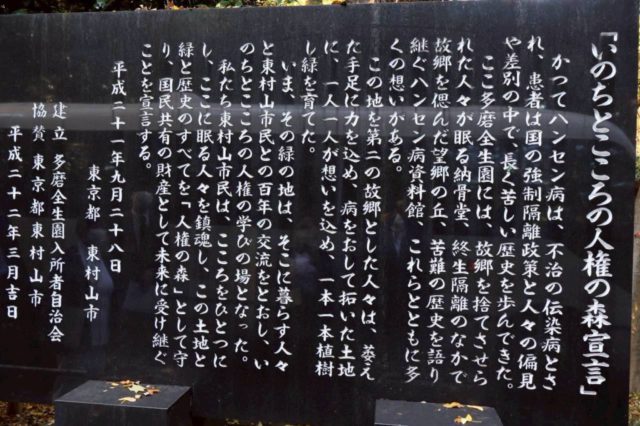 「いのちとこころの人権の森宣言」
かつてハンセン病は、不治の伝染病とさ
れ、患者は国の強制隔離政策と人々の偏見
や差別の中で、長く苦しい歴史を歩んできた。
ここ多磨全生園には、故郷を捨てさせら
れた人々が眠る納骨堂、終生隔離のなかで
故郷を偲んだ望郷の丘、苦難の歴史を語り
継ぐハンセン病資料館、これらとともに多
くの想いがある。
この地を第二の故郷とした人々は、萎え
た手足に力を込め、病をおして拓いた土地
に、一人一人が想いを込め、一本一本植樹
し緑を育てた。
いま、その緑の地は、そこに暮らす人々
と東村山市民との百年の交流をとおし、い
のちとこころの人権の学びの場となった。
私たち東村山市民は、こころをひとつに
し、ここに眠る人々を鎮魂し、この土地と
緑と歴史のすべてを「人権の森」として守
り、国民共有の財産として未来に受け継ぐ
ことを宣言する。
平成二十一年九月二十八日
東京都 東村山市
建立 多磨全生園入所者自治会
協賛 東京都東村山市
平成二十二年三月吉日